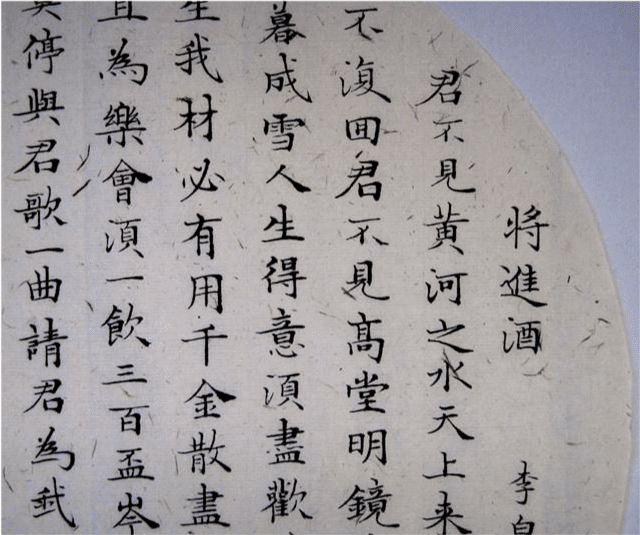 將進酒 李白
君不見黃河之水天上来
不復回君不見高堂明鏡
暮成雪人生得意須盡歡
生我材必有用千金散盡
且為樂會須一飲三百盃岑
莫停與君歌一曲請君為我